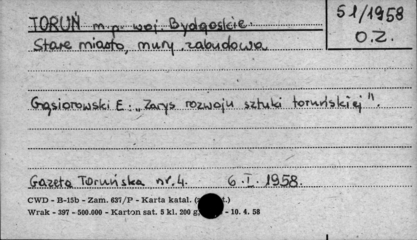 TORUŃ m.p. woj. Bydgoskie.
51/1958
O.Z.
Stare miasto, mury, zabudowa
Gąsiorowski E: „Zarys rozwoju sztuki toruńskiej".
Gazeta Toruńska nr. 4. 6.I.1958.
CWD - B-15b - Zam. 637/P - Karta katal. t.)
Wrak - 397 - 500.000 - Karton sat. 5 kl. 200 g - 10. 4. 58